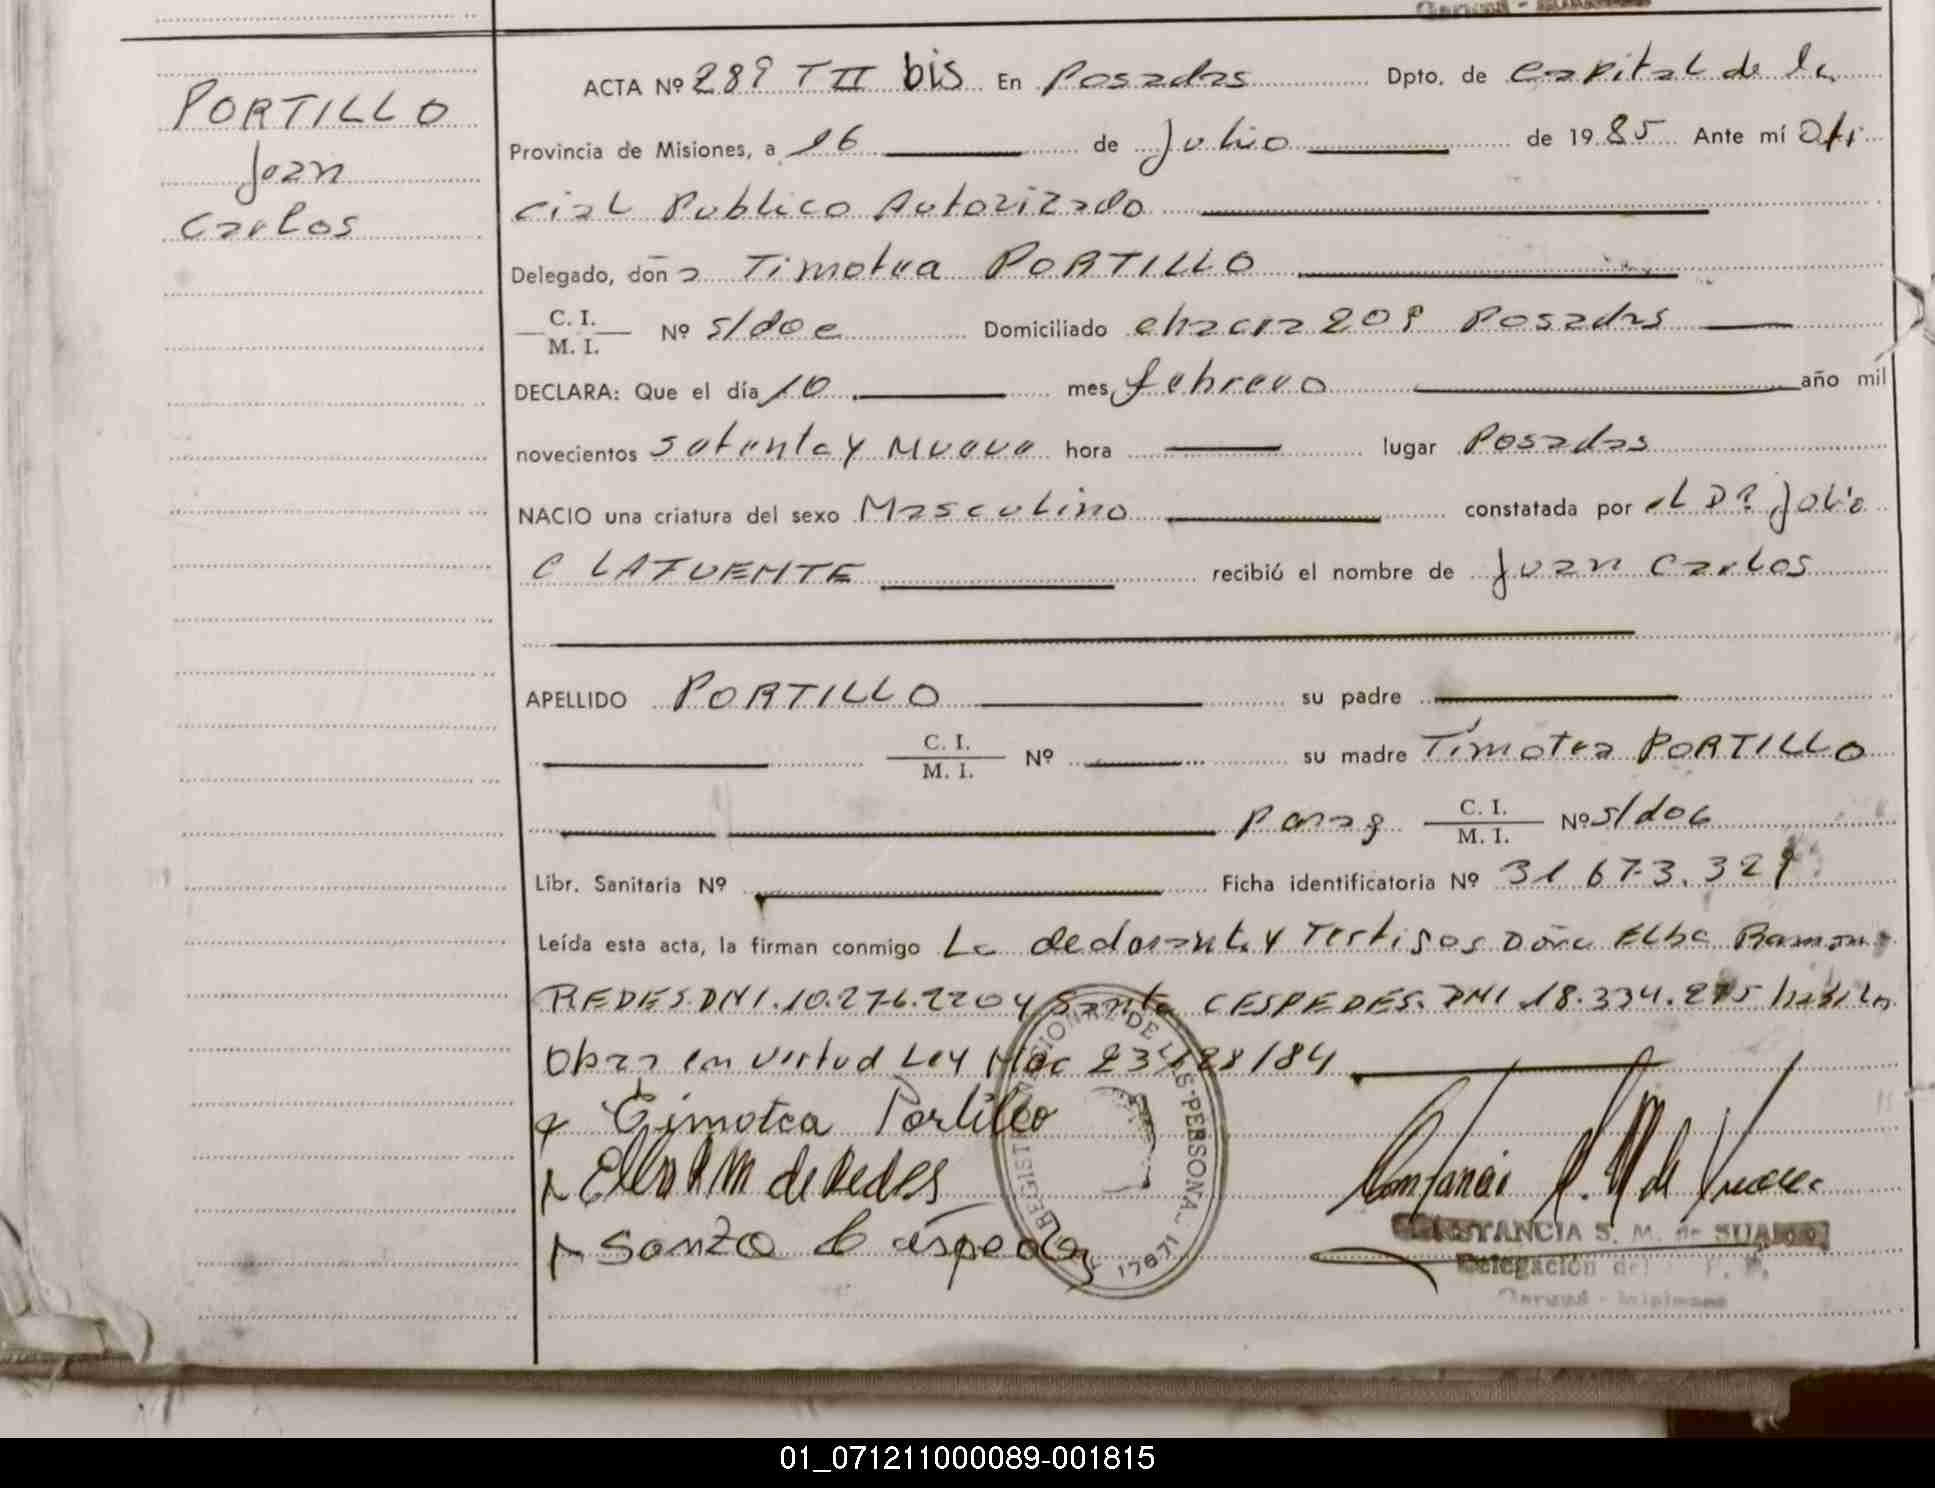 PORTILLO
Juan
Carlos
ACTA Nº 289 T II bis En Posadas Dpto. de Capital de la
Provincia de Misiones, a 16 de Julio de 1985 Ante mí Ofi
cial Publico Autorizado
Delegado, doña Timotea PORTILLO
C. I.
M. I. Nº s/doc Domiciliado chacra 209 Posadas
DECLARA: Que el día 10 mes febrero año mil
novecientos setenta y Nueve hora lugar Posadas
NACIO una criatura del sexo Masculino constatada por el Dr Julio
C LAFUENTE recibió el nombre de Juan Carlos
APELLIDO PORTILLO su padre
C. I.
M. I. Nº su madre Timotea PORTILLO
Parag C. I.
M. I. Nº s/doc
Libr. Sanitaria Nº Ficha identificatoria Nº 31.673.329
Leída esta acta, la firman conmigo La declarante y Testigos Doña Elba Ramona
REDES DNI.10.276.220 y CESPEDES. DNI 18.334.
Obra en virtud Ley Nac 23128/84
Timotea Portillo
Elba R M de Redes
REGISTRO DE LAS PERSONAS
CONSTANCIA S. M. de
Delegación del
01_071211000089-001815